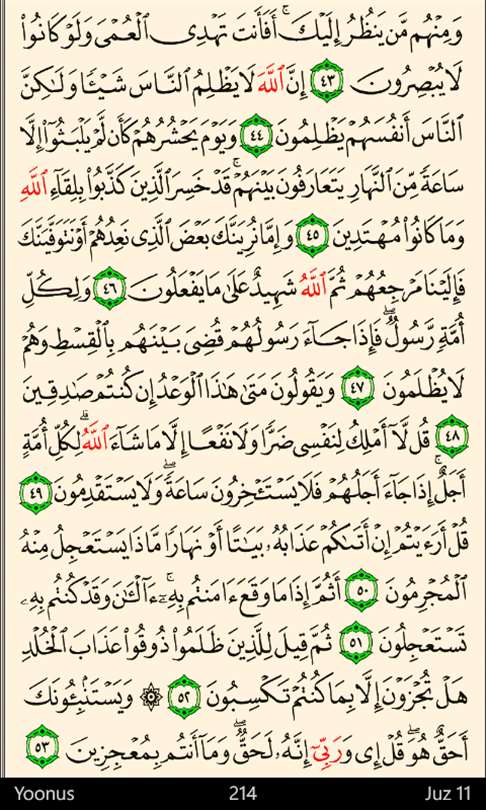 وَمِنْهُم مَّن يَنظُرُ إِلَيْكَ ۚ أَفَأَنتَ تَهْدِى ٱلْعُمْىَ وَلَوْ كَانُوا۟
لَا يُبْصِرُونَ ٤٣ إِنَّ ٱللَّهَ لَا يَظْلِمُ ٱلنَّاسَ شَيْـًٔا وَلَـٰكِنَّ
ٱلنَّاسَ أَنفُسَهُمْ يَظْلِمُونَ ٤٤ وَيَوْمَ يَحْشُرُهُمْ كَأَن لَّمْ يَلْبَثُوٓا۟ إِلَّا
سَاعَةً مِّنَ ٱلنَّهَارِ يَتَعَارَفُونَ بَيْنَهُمْ ۚ قَدْ خَسِرَ ٱلَّذِينَ كَذَّبُوا۟ بِلِقَآءِ ٱللَّهِ
وَمَا كَانُوا۟ مُهْتَدِينَ ٤٥ وَإِمَّا نُرِيَنَّكَ بَعْضَ ٱلَّذِى نَعِدُهُمْ أَوْ نَتَوَفَّيَنَّكَ
فَإِلَيْنَا مَرْجِعُهُمْ ثُمَّ ٱللَّهُ شَهِيدٌ عَلَىٰ مَا يَفْعَلُونَ ٤٦ وَلِكُلِّ
أُمَّةٍ رَّسُولٌ ۖ فَإِذَا جَآءَ رَسُولُهُمْ قُضِىَ بَيْنَهُم بِٱلْقِسْطِ وَهُمْ
لَا يُظْلَمُونَ ٤٧ وَيَقُولُونَ مَتَىٰ هَـٰذَا ٱلْوَعْدُ إِن كُنتُمْ صَـٰدِقِينَ
٤٨ قُل لَّآ أَمْلِكُ لِنَفْسِى ضَرًّا وَلَا نَفْعًا إِلَّا مَا شَآءَ ٱللَّهُ ۗ لِكُلِّ أُمَّةٍ
أَجَلٌ ۚ إِذَا جَآءَ أَجَلُهُمْ فَلَا يَسْتَـْٔخِرُونَ سَاعَةً ۖ وَلَا يَسْتَقْدِمُونَ ٤٩
قُلْ أَرَءَيْتُمْ إِنْ أَتَىٰكُمْ عَذَابُهُۥ بَيَـٰتًا أَوْ نَهَارًا مَّاذَا يَسْتَعْجِلُ مِنْهُ
ٱلْمُجْرِمُونَ ٥٠ أَثُمَّ إِذَا مَا وَقَعَ ءَامَنتُم بِهِۦٓ ۚ ءَآلْـَٔـٰنَ وَقَدْ كُنتُم بِهِۦ
تَسْتَعْجِلُونَ ٥١ ثُمَّ قِيلَ لِلَّذِينَ ظَلَمُوا۟ ذُوقُوا۟ عَذَابَ ٱلْخُلْدِ
هَلْ تُجْزَوْنَ إِلَّا بِمَا كُنتُمْ تَكْسِبُونَ ٥٢ ۞ وَيَسْتَنۢبِـُٔونَكَ
أَحَقٌّ هُوَ ۖ قُلْ إِى وَرَبِّىٓ إِنَّهُۥ لَحَقٌّ ۖ وَمَآ أَنتُم بِمُعْجِزِينَ ٥٣
Yoonus 214 Juz 11